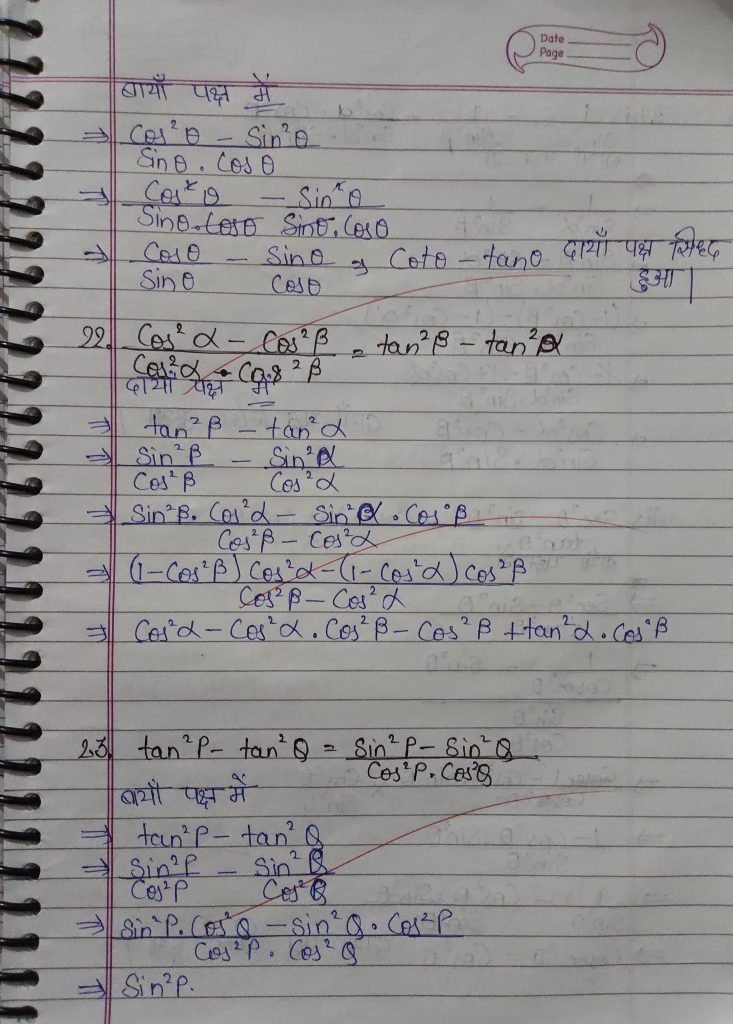 Date
Page
बायाँ पक्ष में
⇒ Cos²θ - Sin²θ / Sinθ . Cosθ
⇒ Cos²θ / Sinθ.Cosθ - Sin²θ / Sinθ.Cosθ
⇒ Cosθ / Sinθ - Sinθ / Cosθ ⇒ Cotθ - tanθ दायाँ पक्ष सिद्ध
हुआ।
22. Cos²α - Cos²β / Cos²α . Cos²β = tan²β - tan²α
दायाँ पक्ष में
⇒ tan²β - tan²α
⇒ Sin²β / Cos²β - Sin²α / Cos²α
⇒ Sin²β. Cos²α - Sin²α . Cos²β / Cos²β - Cos²α
⇒ (1-Cos²β) Cos²α - (1-Cos²α) Cos²β / Cos²β - Cos²α
⇒ Cos²α - Cos²α . Cos²β - Cos²β + tan²α . Cos²β
23. tan²P - tan²Q = Sin²P - Sin²Q / Cos²P . Cos²Q
बायाँ पक्ष में
⇒ tan²P - tan²Q
⇒ Sin²P / Cos²P - Sin²Q / Cos²Q
⇒ Sin²P. Cos²Q - Sin²Q . Cos²P / Cos²P . Cos²Q
⇒ Sin²P.